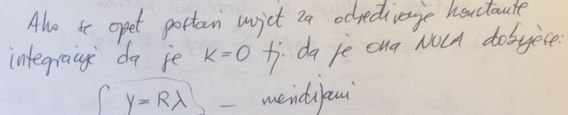 Ako se opet postavi uvjet za određivanje konstante
integracije da je K=0 tj. da je ona NULA dobijese:
y=Rλ — meridijani